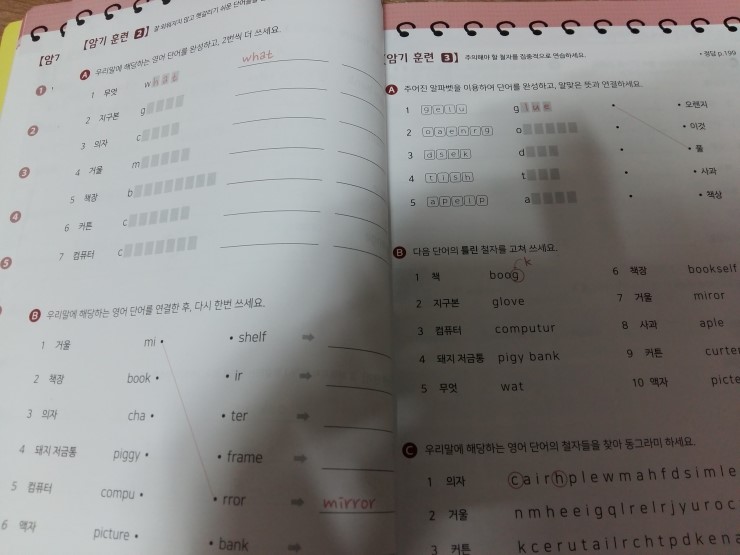 【암기
【암기 훈련 2】 잘 외워지지 않고 헷갈리기 쉬운
A 우리말에 해당하는 영어 단어를 완성하고, 2번씩 더 쓰세요.
1 무엇 what what
2 지구본 g
3 의자 c
4 거울 m
5 책장 b
6 커튼 c
7 컴퓨터 c
B 우리말에 해당하는 영어 단어를 연결한 후, 다시 한번 쓰세요.
1 거울 mi • • shelf ➡
2 책장 book • • ir ➡
3 의자 cha • • ter ➡
4 돼지 저금통 piggy • • frame
5 컴퓨터 compu • • rror ➡ mirror
6 액자 picture • • bank ➡
1
2
3
4
5
암기 훈련 3】 주의해야 할 철자를 집중적으로 연습하세요. • 정답 p.199
A 주어진 알파벳을 이용하여 단어를 완성하고, 알맞은 뜻과 연결하세요.
1 g e l u glue • • 오렌지
2 o a e n r g o • • 이것
3 d s e k d • • 풀
4 t i s h t • • 사과
5 a p e l p a • • 책상
B 다음 단어의 틀린 철자를 고쳐 쓰세요.
1 책 boog k 6 책장 bookself
2 지구본 glove 7 거울 miror
3 컴퓨터 computur 8 사과 aple
4 돼지 저금통 pigy bank 9 커튼 curte
5 무엇 wat 10 액자 picte
C 우리말에 해당하는 영어 단어의 철자들을 찾아 동그라미 하세요.
1 의자 c a i r h p l e w m a h f d s i m l e
2 거울 n m h e e i g q l r e l r j y u r o c
3 커튼 k c e r u t a i l r c h t p d k e n a